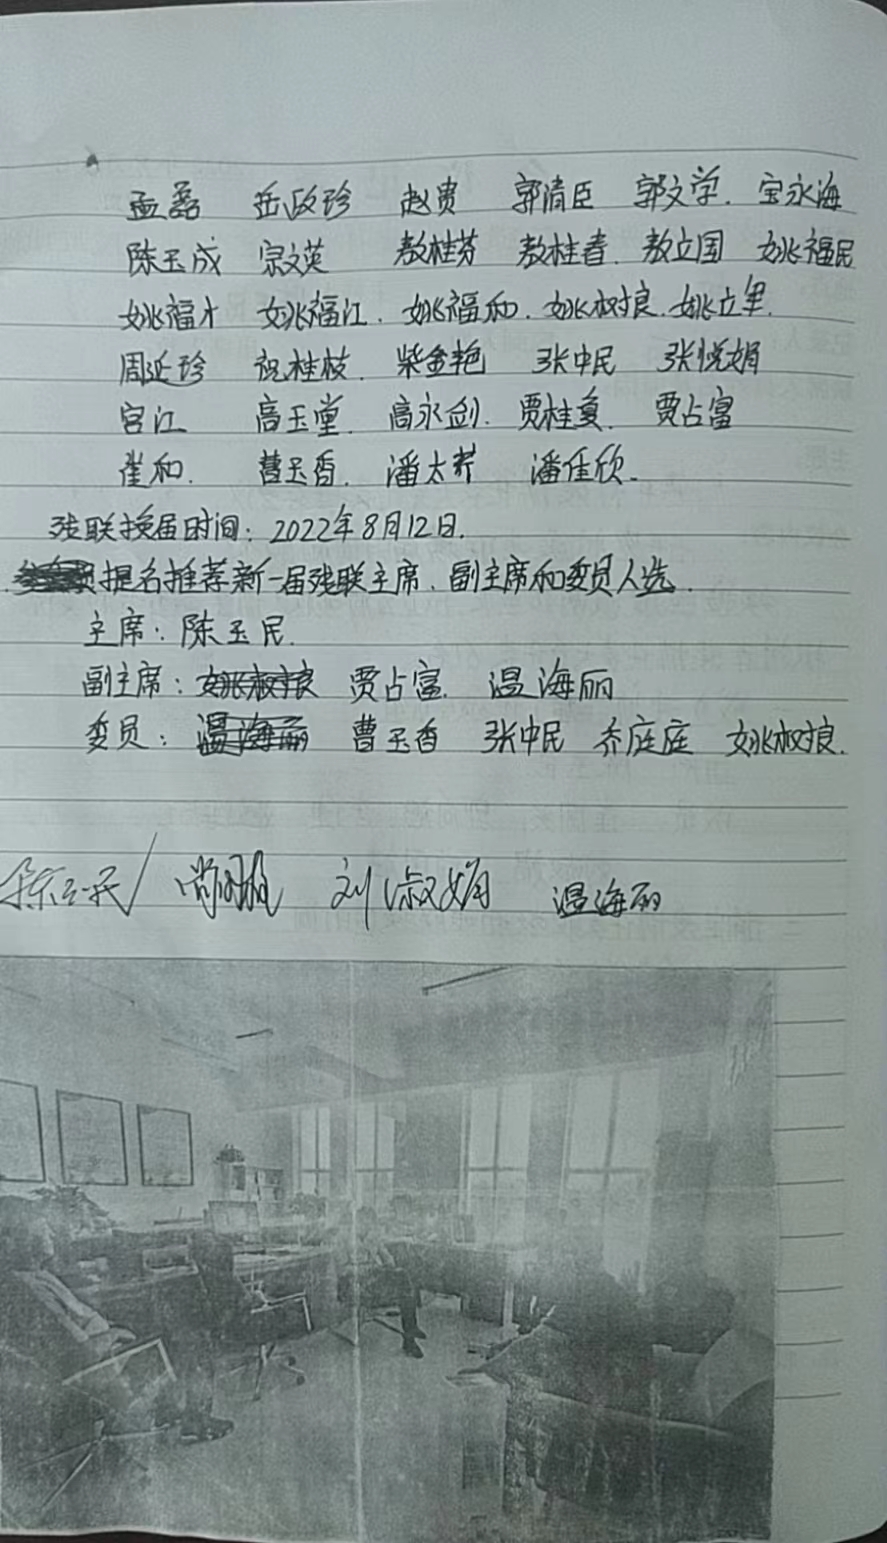 孟磊 岳政珍 赵贵 郭清臣 郭文学. 宝永海
陈玉成 宗文英 敖桂芬 敖桂春. 敖立国 姚福民
姚福才 姚福江. 姚福和. 姚树良. 姚立军.
周延珍 祝桂枝. 柴金艳 张中民 张悦娟
宫江 高玉堂. 高永剑. 贾桂复. 贾占富
崔和. 曹玉香. 潘太芹 潘佳欣.
残联换届时间: 2022年8月12日.
提名推荐新一届残联主席、副主席和委员人选.
主席: 陈玉民.
副主席: 姚树良 贾占富. 温海丽
委员: 温海丽 曹玉香 张中民 乔庭庭 姚树良.
陈玉民 刘淑娟 温海丽